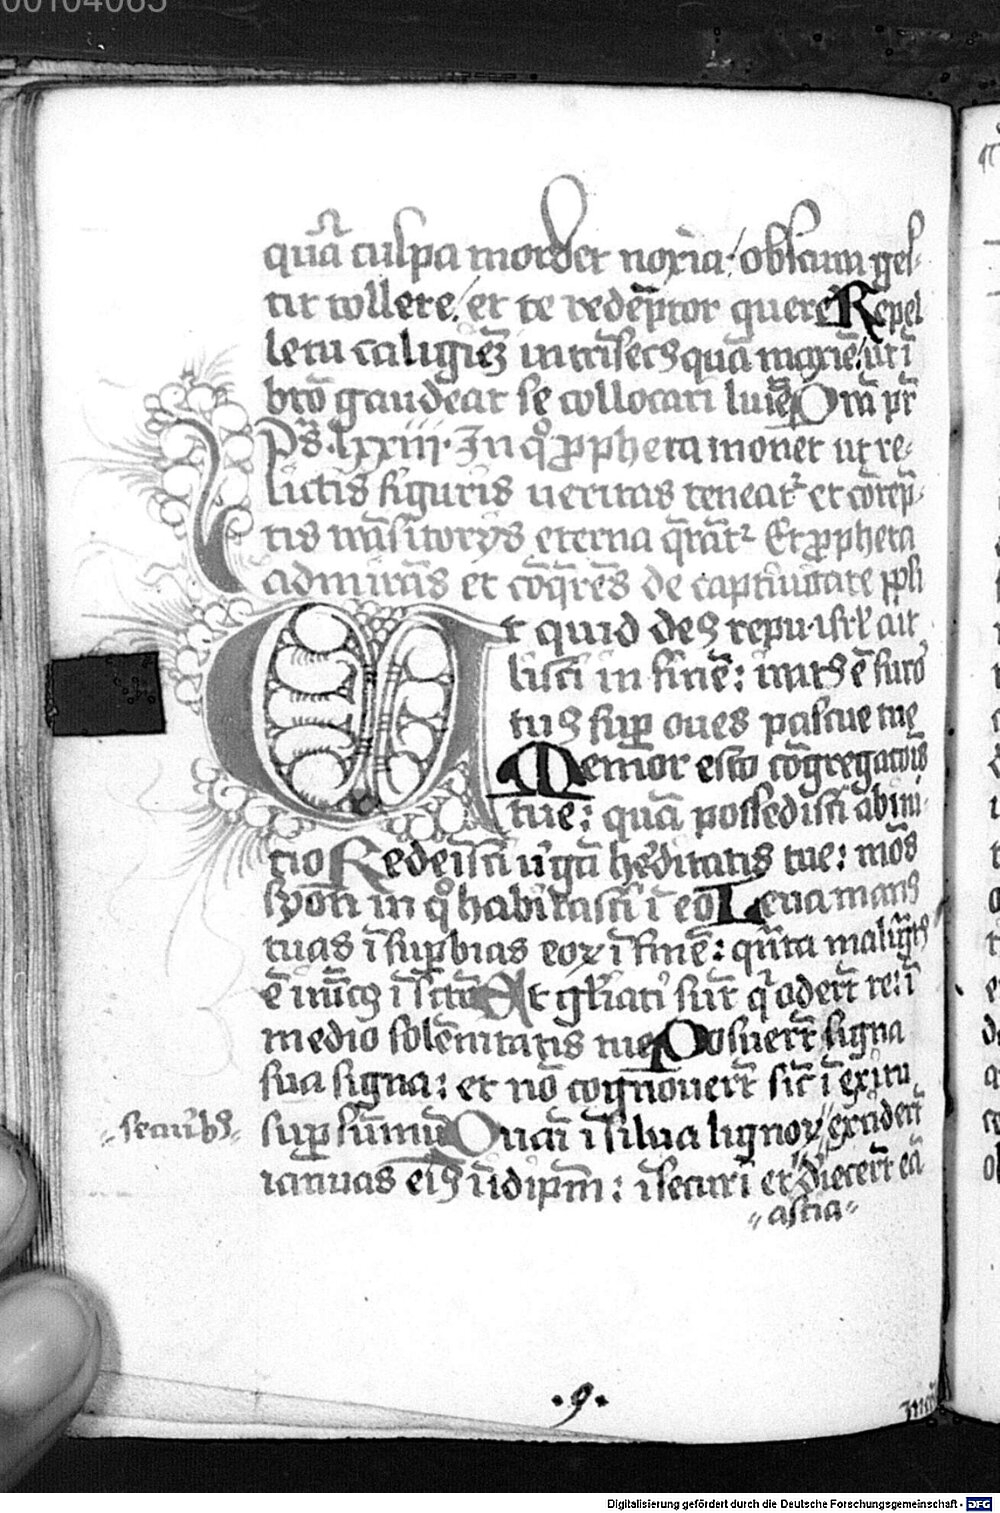 00104085
quã culpa mordet noxia / obscum ges-
tit tollere / et te redẽptor querẽ Repel
lẽtu caliginẽ intrĩsecꝰ quã maxiẽ / ut ĩ
btõ gaudeat se collocari luĩe Orã pr̃
Ps̃. lxxiii. In qͦ ꝓpheta monet ut re-
lictis figuris ueritas teneatᷣ et cõrep̃-
tis trãsitorijs eterna q̃ratᷣ Et ꝓpheta
admirãs et cõq̃rẽs de captiuitate ppli
Ut quid deꝰ repu-isr̃l ait
listi in finẽ: iratꝰ ẽ furo
tuꝰ suꝑ oues pascue tuę
Memor esto cõgregatõis
tue: quã possedisti ab ini-
tio Redeisti uirgã hẽditatis tue: mõs
syon in qͦ habitasti ĩ eo Leua manꝰ
tuas ĩ suꝑbias eoꝝ ĩ finẽ: q̃nta malignatꝰ
ẽ inimicꝰ ĩ scto Et gl̃iati sũt q̃ oderũt te: ĩ
medio solẽnitatis tue Posuerũt signa
sua signa: et nõ cognouerũt sic̃ ĩ exitu
suꝑ sũmũ Quasi ĩ silua lignoꝝ // exciderũt
ianuas eiꝰ ĩ idip̃m: ĩ securi et // dieceñt eã
// securibꝰ //
// ascia //
.9.
Digitalisierung gefördert durch die Deutsche Forschungsgemeinschaft - DFG